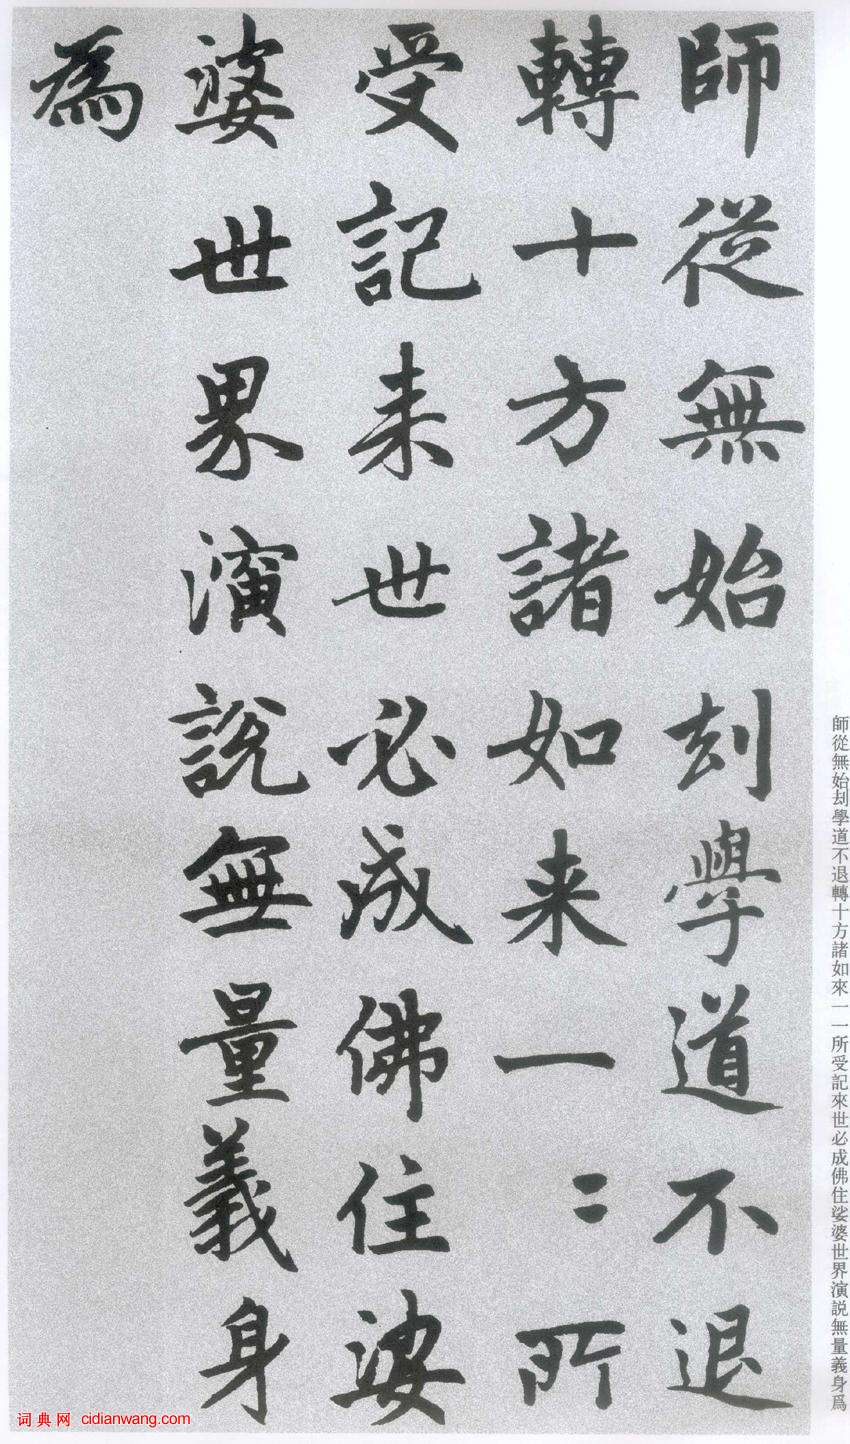 師從無始刦學道不退
轉十方諸如来一〻所
受記来世必成佛住娑
婆世界演說無量義身
為
師從無始刦學道不退轉十方諸如來一一所受記來世必成佛住娑婆世界演説無量義身爲
词典网 cidianwang.com